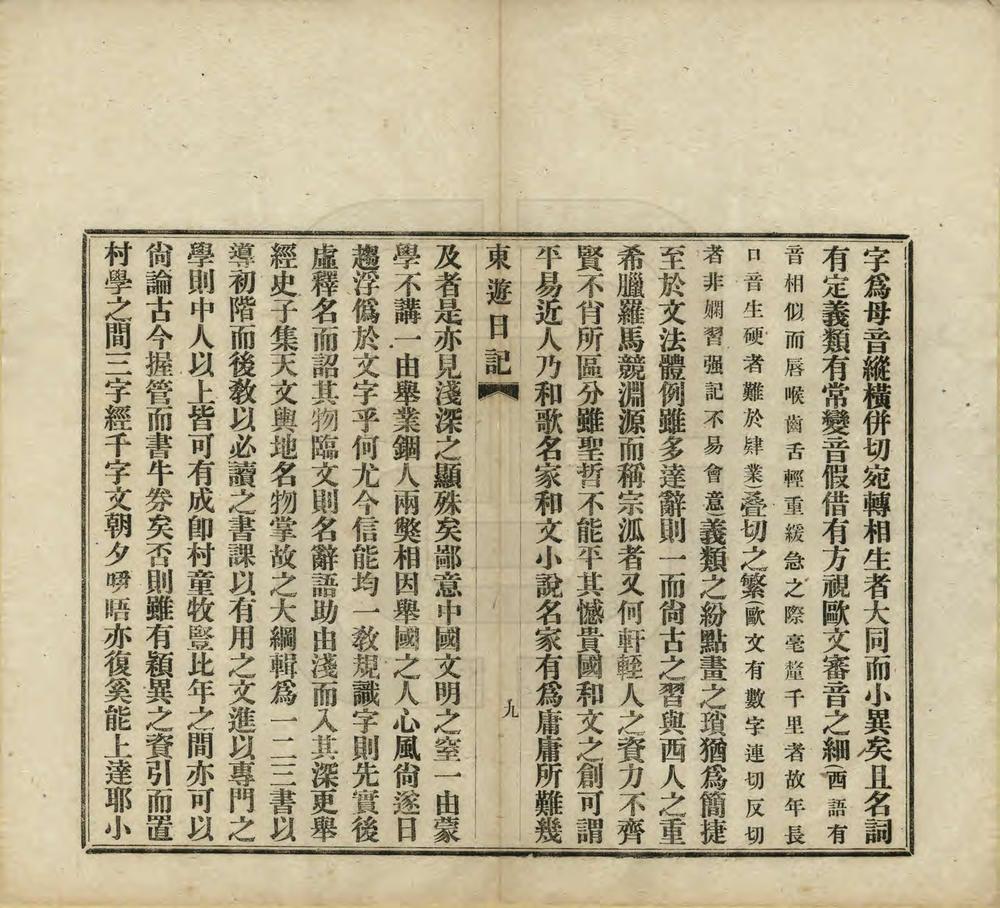 字爲母音縱橫併切宛轉相生者大同而小異矣且名詞
有定義類有常變音假借有方視歐文審音之細(西語有
音相似而唇喉齒舌輕重緩急之際毫釐千里者故年長
口音生硬者難於肄業)叠切之繁(歐文有數字連切反切
者非嫻習强記不易會意)義類之紛點畫之瑣猶爲簡捷
至於文法體例雖多達辭則一而尙古之習與西人之重
希臘羅馬競淵源而稱宗泒者又何軒輊人之資力不齊
賢不肖所區分雖聖哲不能平其憾貴國和文之創可謂
平易近人乃和歌名家和文小說名家有爲庸庸所難幾
東遊日記
九
及者是亦見淺深之顯殊矣鄙意中國文明之窒一由蒙
學不講一由舉業錮人兩獘相因舉國之人心風尙遂日
趨浮僞於文字乎何尤今信能均一敎規識字則先實後
虛釋名而詔其物臨文則名辭語助由淺而入其深更舉
經史子集天文輿地名物掌故之大綱輯爲一二三書以
導初階而後敎以必讀之書課以有用之文進以專門之
學則中人以上皆可有成卽村童牧豎比年之間亦可以
尙論古今握管而書牛券矣否則雖有穎異之資引而置
村學之間三字經千字文朝夕瞬晤亦復奚能上達耶小